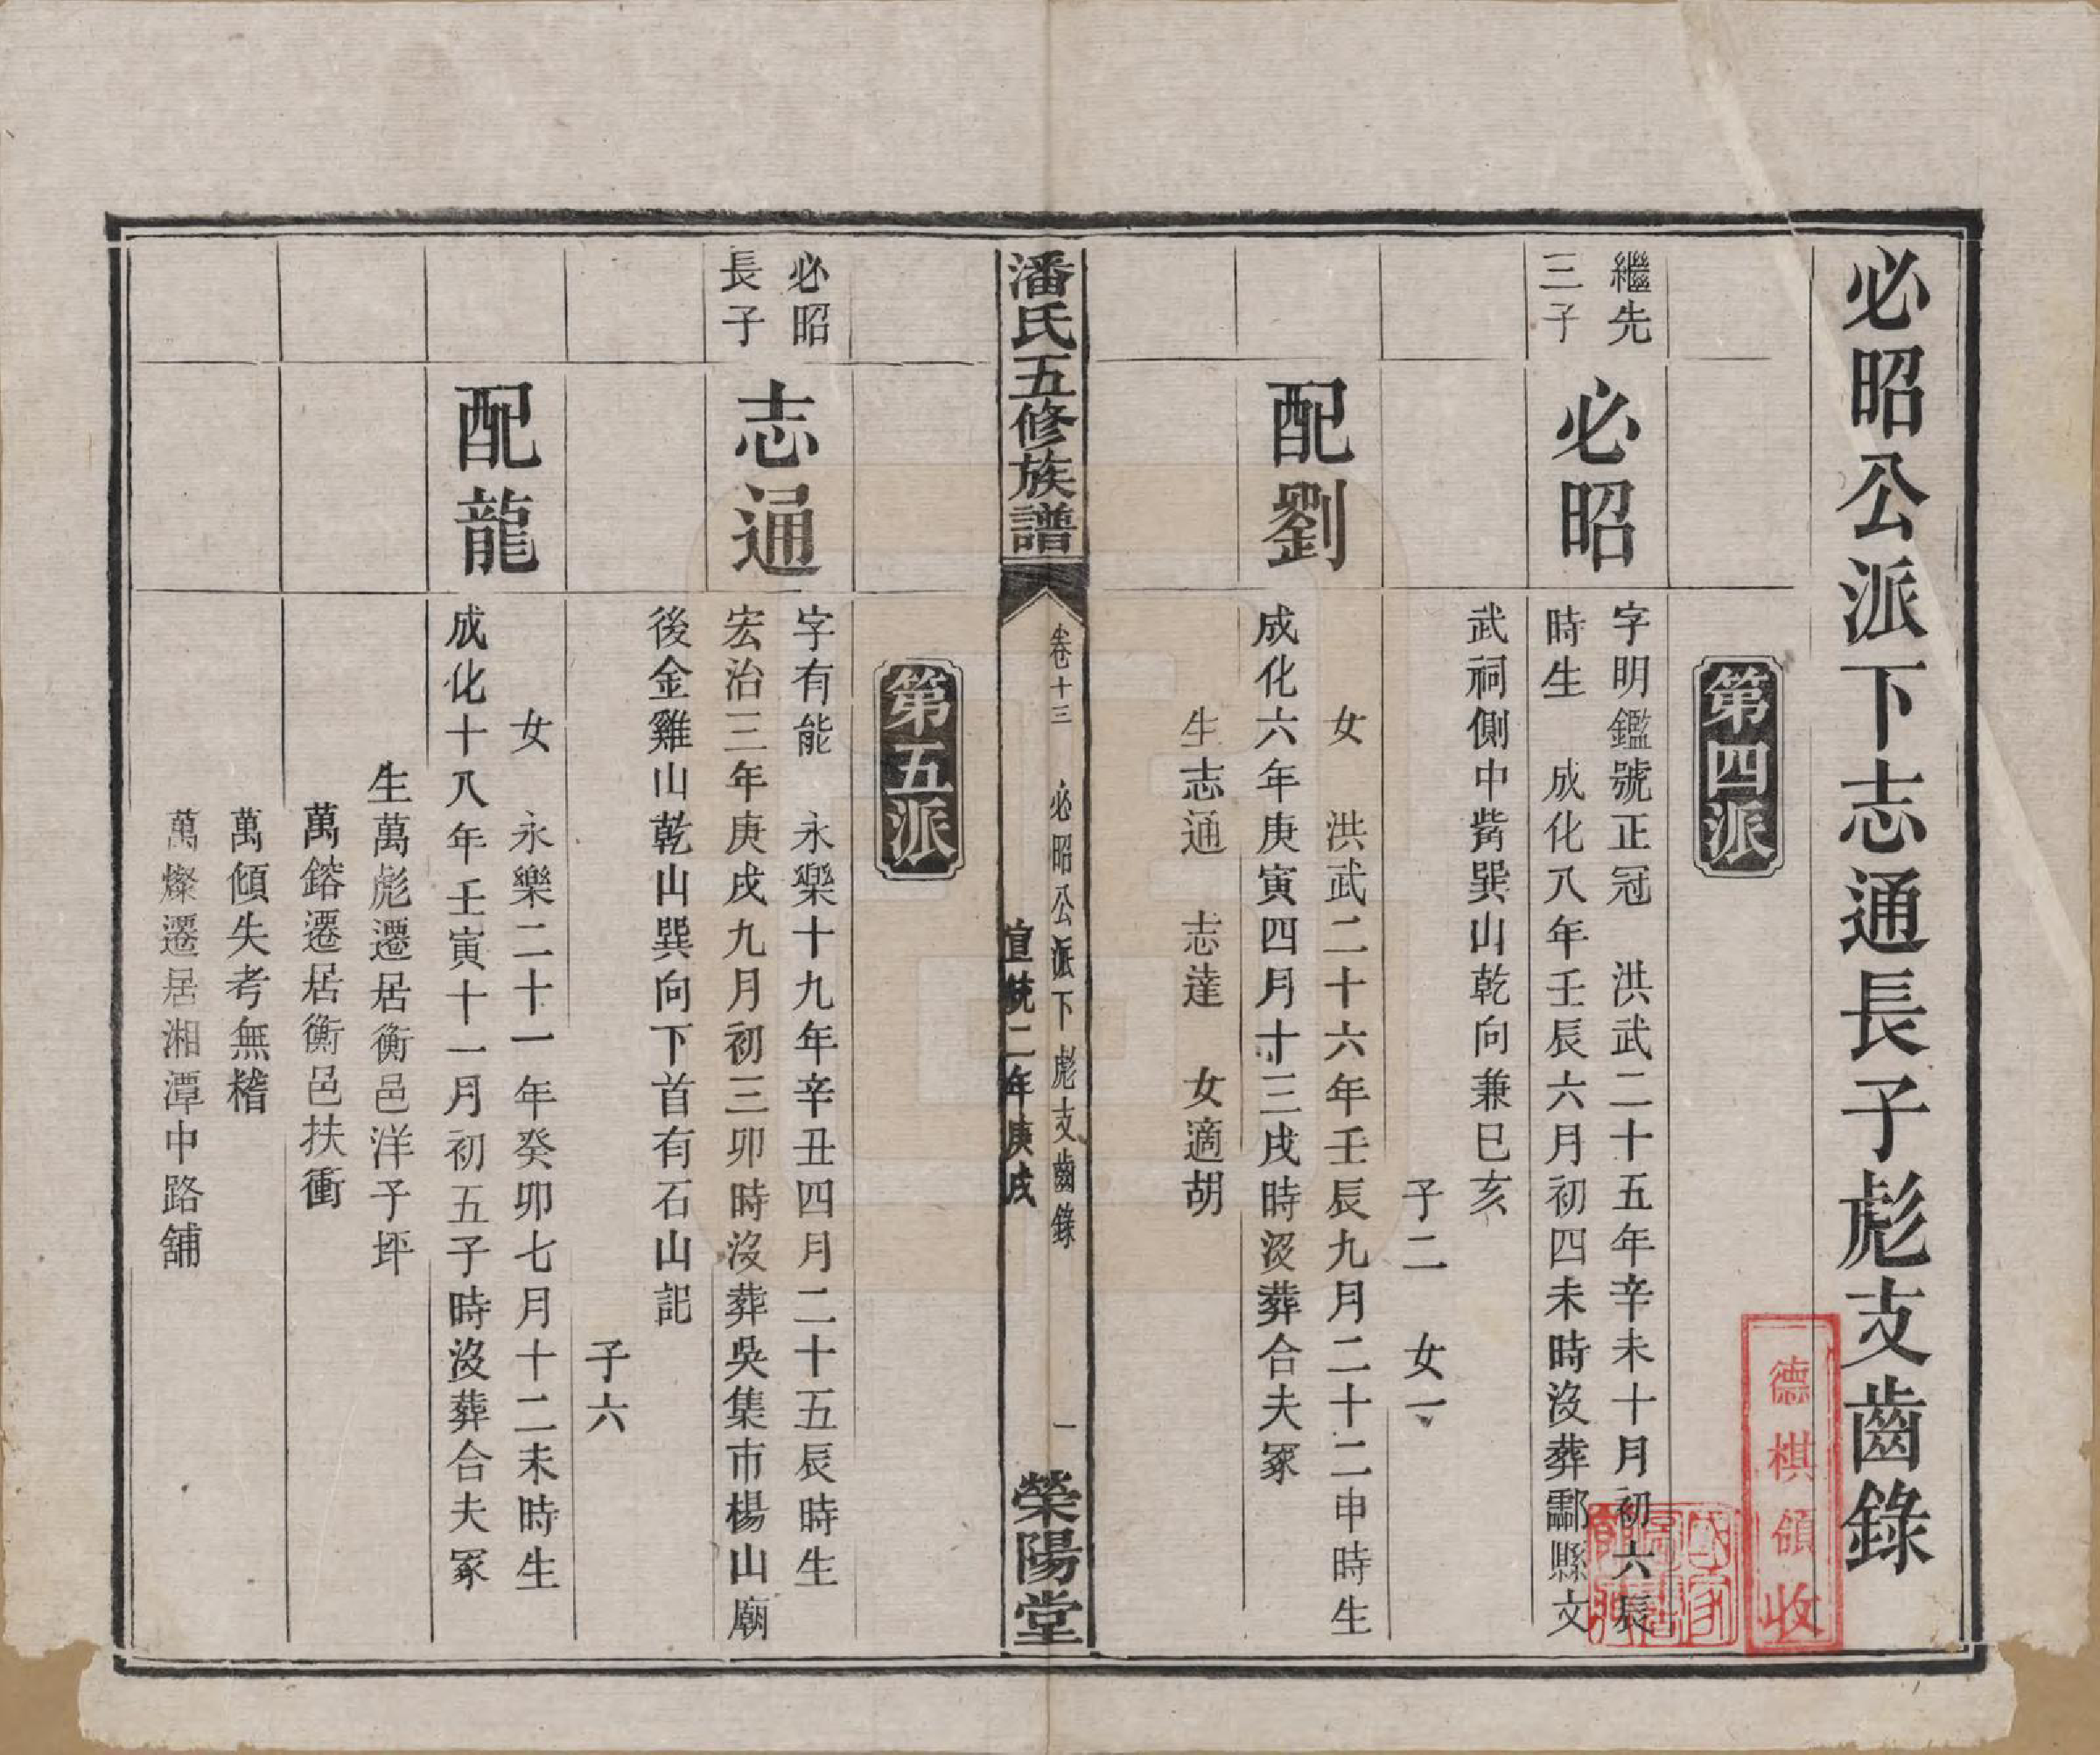 必昭公派下志通長子彪支齒錄
第四派
繼先
三子
必昭
字明鑑號正冠　洪武二十五年辛未十月初六辰
時生　成化八年壬辰六月初四未時沒葬酃縣文
武祠側中嵴巽山乾向兼巳亥
子二　女一
配劉
女　洪武二十六年壬辰九月二十二申時生
成化六年庚寅四月十三戌時沒葬合夫冢
生志通　志達　女適胡
潘氏五修族譜
卷十三　必昭公派下彪支齒錄　一
宣統二年庚戌
榮陽堂
第五派
必昭
長子
志通
字有能　永樂十九年辛丑四月二十五辰時生
宏治三年庚戌九月初三卯時沒葬吳集市楊山廟
後金雞山乾山巽向下首有石山記
子六
配龍
女　永樂二十一年癸卯七月十二未時生
成化十八年壬寅十一月初五子時沒葬合夫冢
生萬彪遷居衡邑洋子坪
萬鎔遷居衡邑扶衝
萬傾失考無稽
萬燦遷居湘潭中路舖
德棋領收